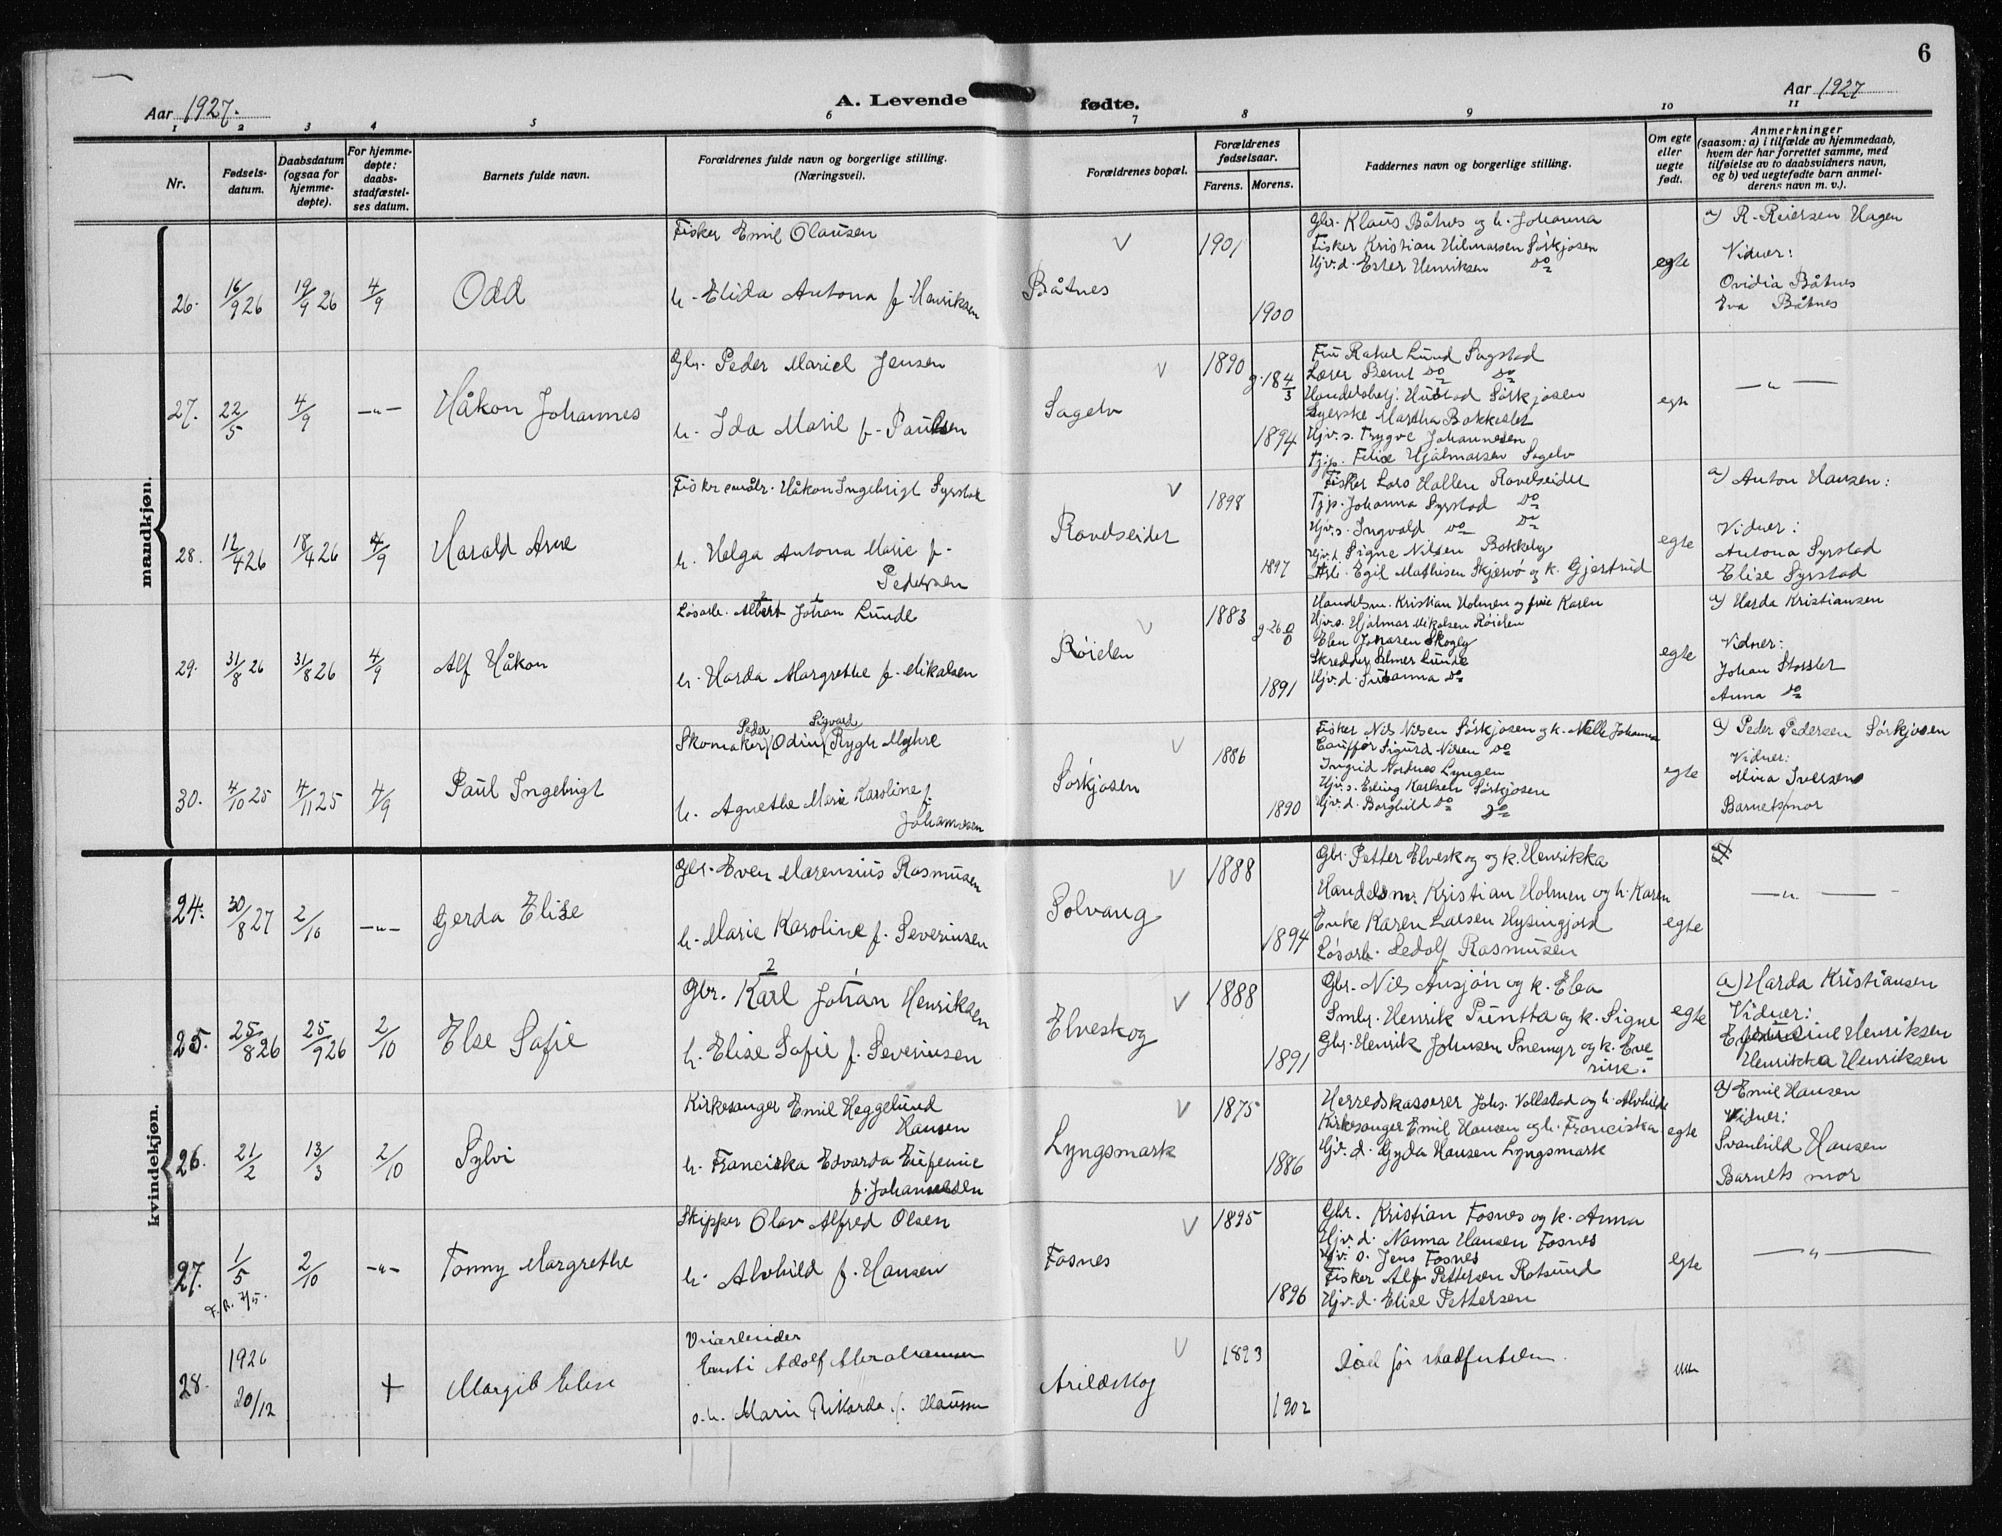 6
Aar 1927.
A. Levende fødte.
Aar 1927
1 2 3 4 5 6 7 8 9 10 11
Nr.
Fødsels-
datum.
Daabsdatum
(ogsaa for
hjemme-
døpte).
For hjemme-
døpte:
daabs-
stadfæstel-
ses datum.
Barnets fulde navn.
Forældrenes fulde navn og borgerlige stilling.
(Næringsvei).
Forældrenes bopæl.
Forældrenes
fødselsaar.
Farens. Morens.
Faddernes navn og borgerlige stilling.
Om egte
eller
uegte
født.
Anmerkninger
(saasom: a) i tilfælde av hjemmedaab,
hvem der har forrettet samme, med
tilføielse av to daabsvidners navn,
og b) ved uegtefødte barn anmel-
derens navn m. v.).
mandkjøn.
26.
16/9 26
19/9 26
4/9
Odd
Fisker Emil Olausen
h. Elida Antona f. Henriksen
Båtnes
1901
1900
Gbr. Klaus Båtnes og h. Johanna
Fisker Kristian Hilmarsen Sörkjosen
Hjv.d. Ester Henriksen do
egte
a) R. Reiersen Hagen
Vidner:
Ovidia Båtnes
Eva Båtnes
27.
22/5
4/9
-"-
Håkon Johannes
Gbr. Peder Mariel Jensen
h. Ida Maril f. Paulsen
Sagelv
1890
g. 18 4/3
1894
Fru Rakel Lund Sagstad
Lærer Bernt do do
Handelsbetj. Hustad Sörkjosen
Syerske Martha Bakkeslet
Hjv.s. Trygve Johannesen
Tj.p. Felix Hjalmarsen Sagelv
egte
-"-
28.
12/4 26
18/4 26
4/9
Harald Arne
Fisker Håkon Ingebrigt Syrstad
h. Helga Antona Marie f.
Pedersen
Ravelseidet
1898
1897
Fisker Lars Hallen Ravelseidet
Tjp. Johanna Syrstad do
Hjv.s. Ingvald do do
Hjv.d. Signe Nilsen Bakkeby
Arb. Egil Mathisen Skjervö og k. Gjertrud
egte
a) Anton Hansen:
Vidner:
Antona Syrstad
Elise Syrstad
29.
31/8 26
31/8 26
4/9
Alf Håkon
2 1
Løsarb. Albert Johan Lunde
h. Harda Margrethe f. Mikalsen
Röielen
1883
g. 26 0/0
1891
Handelsm. Kristian Holmen og frue Karen
Hjv.s. Hjalmar Mikalsen Röielen
Elen Johansen Skogly
Skredder Selmer Lunde
Hjv.d. Susanna do
egte
a) Harda Kristiansen
Vidner:
Johan Storslet
Anna do
30.
4/10 25
4/11 25
4/9
Paul Ingebrigt
Peder Sigvard
Skomaker Odin Rygh Myhre
h. Agnethe Marie Karoline f.
Johannesen
Sörkjosen
1886
1890
Fisker Nils Nilsen Sörkjosen og k. Nelle Johanna
Sigurd Nilsen do
Ingrid Nordnes Lyngen
Hjv.s. Erling Karlsen Sörkjosen
Hjv.d. Borghild do do
egte
a) Peder Pedersen Sörkjosen
Vidner:
Mina Iversen
Barnets mor
kvindekjøn.
24.
30/8 27
2/10
-"-
Gerda Elise
Gbr. Even Marensius Rasmusen
h. Marie Karoline f. Severinsen
Solvang
1888
1894
Gbr. Petter Elveskog og k. Henrikka
Handelsm. Kristian Holmen og h. Karen
Enke Karen Larsen Hysingjord
Løsarb. Ledolf Rasmusen
egte
-"-
25.
25/8 26
25/9 26
2/10
Else Sofie
2 1
Gbr. Karl Johan Henriksen
h. Elise Sofie f. Severinsen
Elveskog
1888
1891
Gbr. Nils Ansjön og k. Elea
Smbr. Henrik Puntta og k. Signe
Gbr. Henrik Johnsen Snemyr og k. Eve-
rine.
egte
a) Harda Kristiansen
Vidner:
Henriksen
Henrikka Henriksen
26.
21/2
13/3
2/10
Sylvi
Kirkesanger Emil Heggelund
Hansen
h. Franciska Edvarda Eufemie
f. Johannesen
Lyngsmark
1875
1886
Herredskasserer Johs. Vollstad og h. Alvhilde
Kirkesanger Emil Hansen og h. Franciska
Hjv.d. Gyda Hansen Lyngsmark
egte
a) Emil Hansen
Vidner:
Svanhild Hansen
Barnets mor
27.
1/5
F.R. 7/5.
2/10
-"-
Tonny Margrethe
Skipper Olav Alfred Olsen
h. Alvhild f. Hansen
Fosnes
1895
1896
Gbr. Kristian Fosnes og k. Anna
Hjv.d. Norma Hansen Fosnes
Hjv.s. Jens Fosnes
Fisker Alf Pettersen Rotsund
Hjv.d. Elise Pettersen
egte
-"-
28.
1926
20/12
+
Margit Elise
Adolf Abrahamsen
o.h. Marie Rikarda f. Hansen
Arildskog
1893
1902
Död før stadfestelsen.